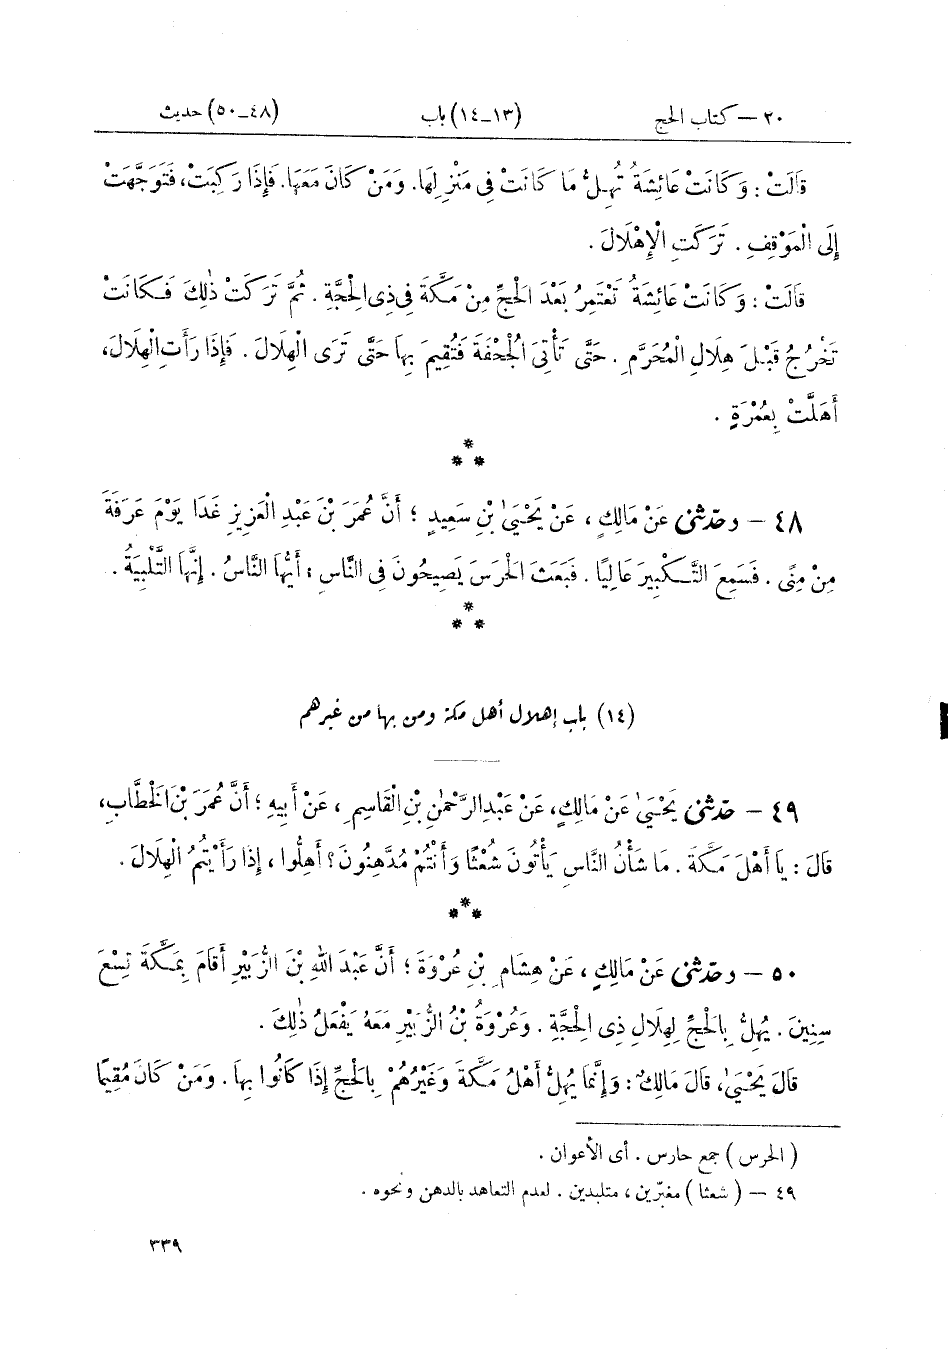 ٢٠ — كتاب الحج (١٣–١٤) باب (٤٨–٥٠) حديث
قَالَتْ : وَكَانَتْ عَائِشَةُ تُهِلُّ مَا كَانَتْ فِي مَنْزِلِهَا. وَمَنْ كَانَ مَعَهَا. فَإِذَا رَكِبَتْ، فَتَوَجَّهَتْ
إِلَى الْمَوْقِفِ . تَرَكَتِ الْإِهْلَالَ .
قَالَتْ : وَكَانَتْ عَائِشَةُ تَعْتَمِرُ بَعْدَ الْحَجِّ مِنْ مَكَّةَ فِي ذِي الْحِجَّةِ . ثُمَّ تَرَكَتْ ذٰلِكَ فَكَانَتْ
تَخْرُجُ قَبْلَ هِلَالِ الْمُحَرَّمِ . حَتَّى تَأْتِيَ الْجُحْفَةَ فَتُقِيمَ بِهَا حَتَّى تَرَى الْهِلَالَ . فَإِذَا رَأَتِ الْهِلَالَ،
أَهَلَّتْ بِعُمْرَةٍ .
*
* *
٤٨ — وحدّثنى عَنْ مَالِكٍ ، عَنْ يَحْيَىٰ بْنِ سَعِيدٍ ؛ أَنَّ عُمَرَ بْنَ عَبْدِ الْعَزِيزِ غَدَا يَوْمَ عَرَفَةَ
مِنْ مِنًى . فَسَمِعَ التَّكْبِيرَ عَالِيًا . فَبَعَثَ الْحَرَسَ يَصِيحُونَ فِي النَّاسِ : أَيُّهَا النَّاسُ . إِنَّهَا التَّلْبِيَةُ .
*
* *
(١٤) باب إهلال أهل مكة ومن بها من غيرهم
٤٩ — حدّثنى يَحْيَىٰ عَنْ مَالِكٍ، عَنْ عَبْدِ الرَّحْمٰنِ بْنِ الْقَاسِمِ ، عَنْ أَبِيهِ ؛ أَنَّ عُمَرَ بْنَ الْخَطَّابِ،
قَالَ : يَا أَهْلَ مَكَّةَ . مَا شَأْنُ النَّاسِ يَأْتُونَ شُعْثًا وَأَنْتُمْ مُدَّهِنُونَ؟ أَهِلُّوا ، إِذَا رَأَيْتُمُ الْهِلَالَ .
*
* *
٥٠ — وحدّثنى عَنْ مَالِكٍ ، عَنْ هِشَامِ بْنِ عُرْوَةَ ؛ أَنَّ عَبْدَ اللهِ بْنَ الزُّبَيْرِ أَقَامَ بِمَكَّةَ تِسْعَ
سِنِينَ . يُهِلُّ بِالْحَجِّ لِهِلَالِ ذِي الْحِجَّةِ . وَعُرْوَةُ بْنُ الزُّبَيْرِ مَعَهُ يَفْعَلُ ذٰلِكَ .
قَالَ يَحْيَىٰ، قَالَ مَالِكٌ : وَإِنَّمَا يُهِلُّ أَهْلُ مَكَّةَ وَغَيْرُهُمْ بِالْحَجِّ إِذَا كَانُوا بِهَا . وَمَنْ كَانَ مُقِيمًا
( الحرس ) جمع حارس . أى الأعوان .
٤٩ — ( شعثا ) مغبّرين ، متلبدين . لعدم التعاهد بالدهن ونحوه .
٣٣٩